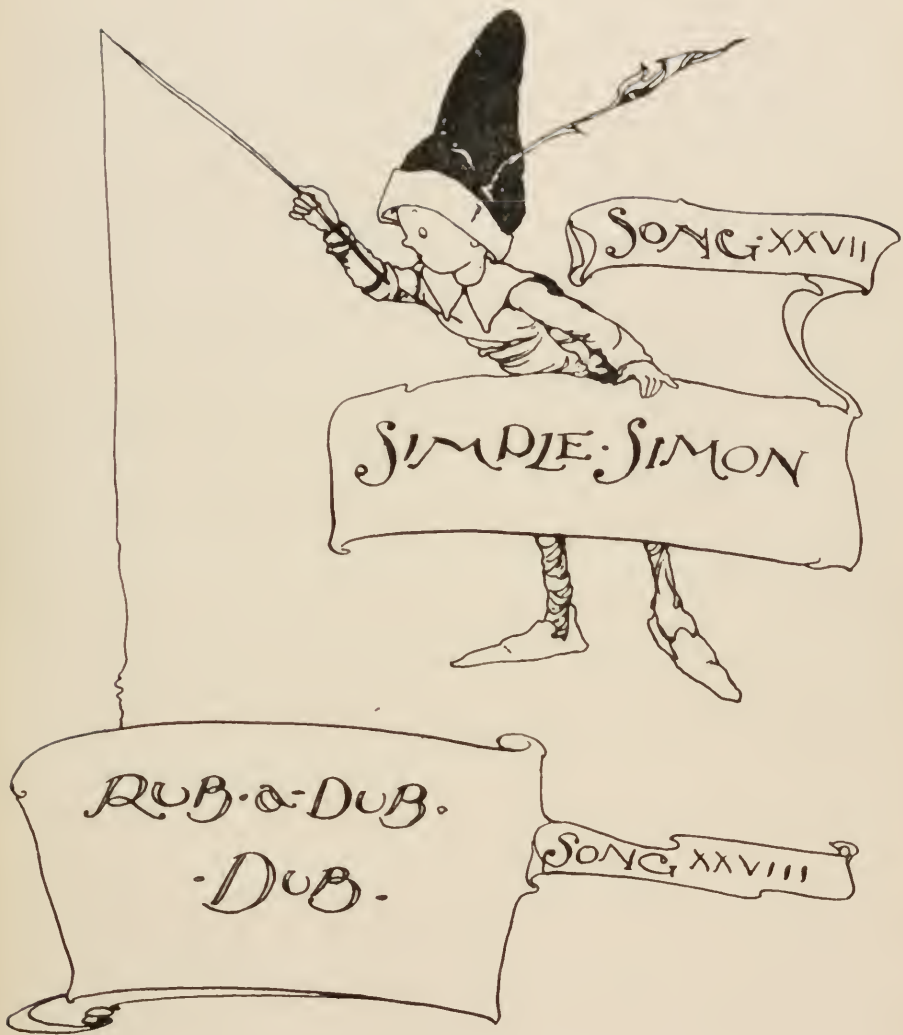 SONG·XXVII
SIMPLE·SIMON
RUB·a·DUB·
·DUB·
SONG XXVIII